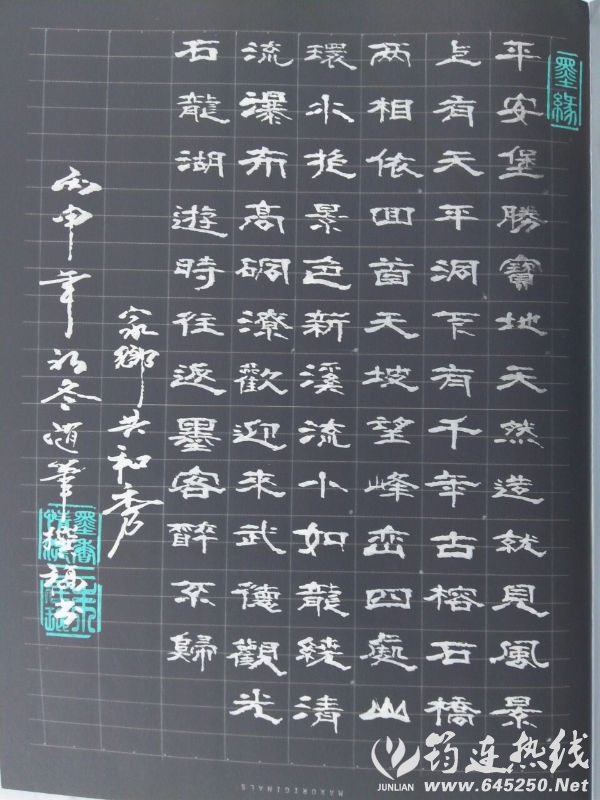 墨緣
平安堡勝寶地天然造就見風景
上有天平洞下有千年古榕石橋
两相依回首天坡望峰峦四處山
環水抱景色新溪流小如龍繞清
流瀑布高硐潦歡迎來武德觀光
石龍湖遊時往逐墨客醉不歸
家鄉共和秀
丙申年初冬随筆撰稿
筠连热线
JUNLIAN www.645250.Net
MAXORIGINALS